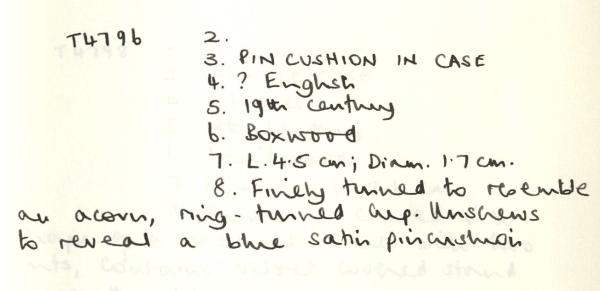 T4796 2.
3. PIN CUSHION IN CASE
4. ? English
5. 19th century
6. Boxwood
7. L. 4.5 cm; Diam. 1.7 cm.
8. Finely turned to resemble
an acorn, ring-turned cup. Unscrews
to reveal a blue satin pincushion